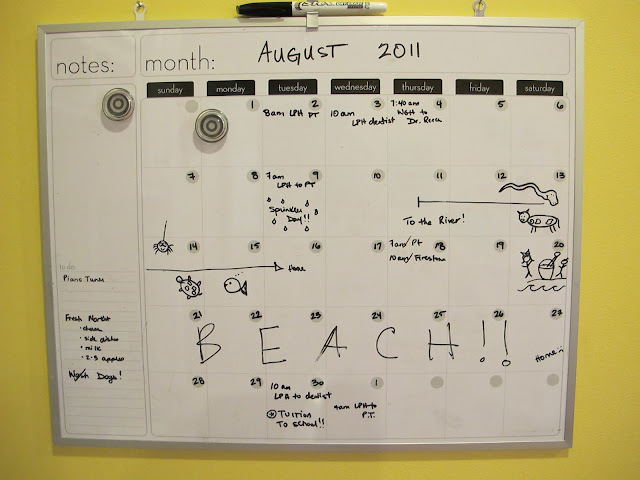 notes:
month: AUGUST 2011
sunday monday tuesday wednesday thursday friday saturday
1 2 3 4 5 6
8am LPH PT
10am
LPH dentist
7:40 am
WGH to
Dr.
7 8 9 10 11 12 13
7am
LPH to PT
Sprinkler
Day!!
To the River!
14 15 16 17 18 19 20
Home
7am/PT
10am/Firestone
21 22 23 24 25 26 27
BEACH!!
Home
28 29 30 1
10 am
LPH to dentist
TUITION
TO SCHOOL!!
9am LPH to
P.T.
to do
Piano Tuner
Fresh Market
• cheese
• side dishes
• milk
• 2-3 apples
Wash Dogs!